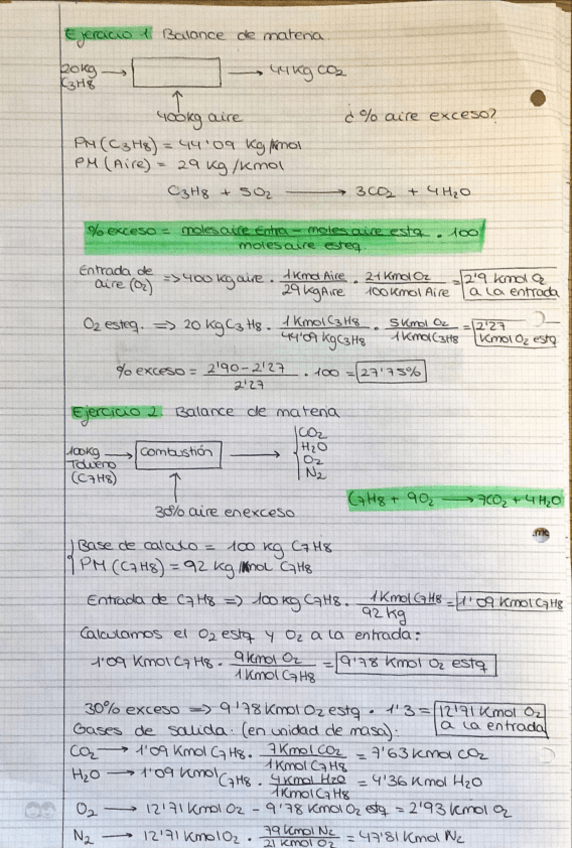 Ejercicio 1: Balance de materia.
20kg C3H8 → → 44 kg CO2
400kg aire ¿% aire exceso?
PM(C3H8) = 44'09 Kg/Kmol
PM(Aire) = 29 Kg/Kmol
C3H8 + 5O2 → 3CO2 + 4H2O
% exceso = (moles aire Entra - moles aire estq.) / (moles aire esteq.) · 100
Entrada de aire (O2) => 400 kg aire · 1Kmol Aire / 29 Kg Aire · 21 Kmol O2 / 100 Kmol Aire = 2'9 Kmol O2 a la entrada
O2 esteq. => 20 Kg C3H8 · 1 Kmol C3H8 / 44'09 Kg C3H8 · 5 Kmol O2 / 1 Kmol C3H8 = 2'27 Kmol O2 estq
% exceso = (2'90 - 2'27) / 2'27 · 100 = 27'75%
Ejercicio 2: Balance de materia
100Kg Tolueno (C7H8) → combustión → CO2
H2O
O2
N2
C7H8 + 9O2 → 7CO2 + 4H2O
30% aire en exceso
Base de calculo = 100 kg C7H8
PM (C7H8) = 92 kg/Kmol C7H8
Entrada de C7H8 => 100 kg C7H8 · 1 Kmol C7H8 / 92 Kg = 1'09 Kmol C7H8
Calculamos el O2 estq y O2 a la entrada:
1'09 Kmol C7H8 · 9 Kmol O2 / 1 Kmol C7H8 = 9'78 Kmol O2 estq
30% exceso => 9'78 Kmol O2 estq · 1'3 = 12'71 Kmol O2 a la entrada
Gases de salida: (en unidad de masa):
CO2 → 1'09 Kmol C7H8 · 7 Kmol CO2 / 1 Kmol C7H8 = 7'63 Kmol CO2
H2O → 1'09 Kmol C7H8 · 4 Kmol H2O / 1 Kmol C7H8 = 4'36 Kmol H2O
O2 → 12'71 Kmol O2 - 9'78 Kmol O2 estq = 2'93 Kmol O2
N2 → 12'71 Kmol O2 · 79 Kmol N2 / 21 Kmol O2 = 47'81 Kmol N2